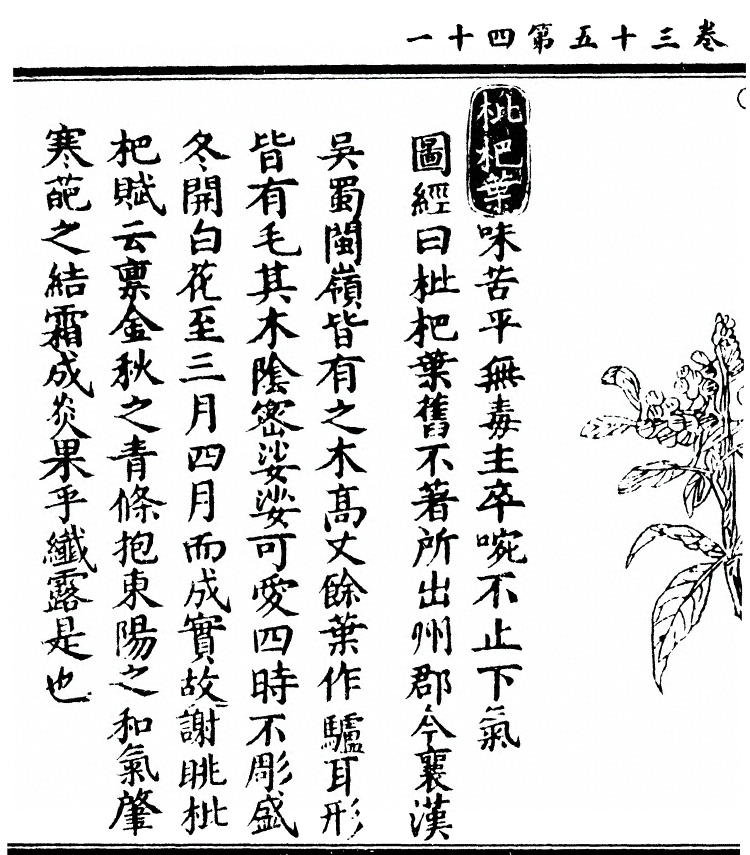 卷三十五第四十一
枇杷葉味苦平無毒主卒啘不止下氣
圖經曰枇杷葉舊不著所出州郡今襄漢
吳蜀閩嶺皆有之木高丈餘葉作驢耳形
皆有毛其木陰密婆娑可愛四時不彫盛
冬開白花至三月四月而成實故謝眺枇
杷賦云稟金秋之青條抱東陽之和氣肇
寒葩之結霜成炎果乎纖露是也